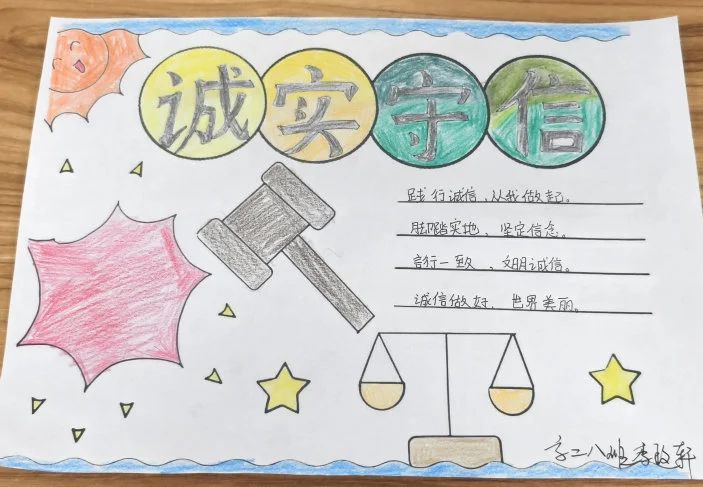 诚实守信
践行诚信、从我做起。
脚踏实地、坚定信念。
言行一致、文明诚信。
诚信做好、世界美丽。
二八班李玫轩